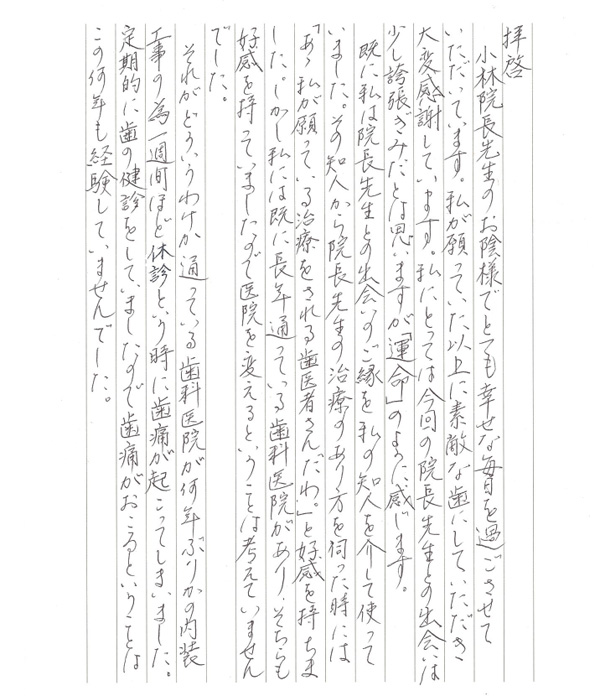 拝啓
小林院長先生のお陰様でとても幸せな毎日を過ごさせて
いただいています。私が願っていた以上に素敵な歯にしていただき
大変感謝しています。私にとっては今回の院長先生との出会いは
少し誇張ぎみだとは思いますが「運命」のように感じます。
既に私は院長先生との出会いのご縁を私の知人を介して使って
いました。その知人から院長先生の治療のあり方を伺った時には
「あゝ私が願っている治療をされる歯医者さんだわ。」と好感を持ちま
した。しかし私には既に長年通っている歯科医院があり、そちらも
好感を持っていましたので医院を変えるということは考えていません
でした。
それがどういうわけか通っている歯科医院が何年ぶりかの内装
工事の為一週間ほど休診という時に歯痛が起こってしまいました。
定期的に歯の健診をしていましたので歯痛がおこるということは
この何年も経験していませんでした。